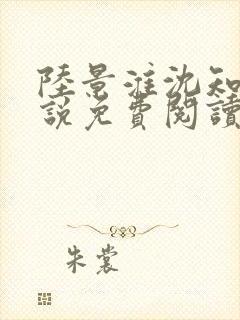 陸景淮沈知
說免費閱讀
朱裳